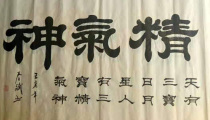 精氣神
天有
三寶
日月
星人
有三
寶精
氣神